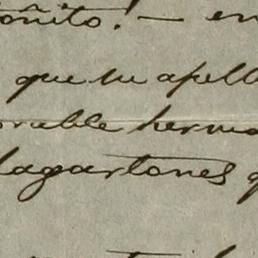 oñito! — en
que tu apell
orable herma
lagartones q